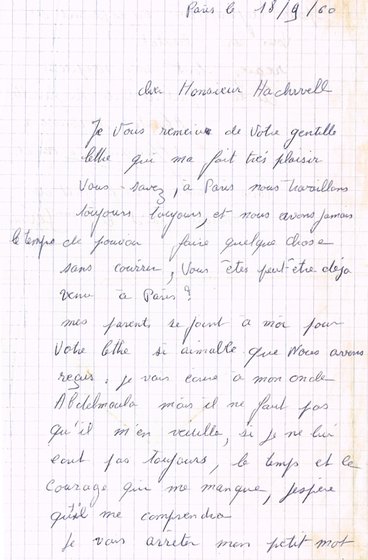 Paris le 18/9/60
cher Monsieur Hachwell
Je Vous remercie de votre gentille
lettre qui ma fait très plaisir
Vous savez, à Paris nous travaillons
toujours toujours, et nous avons jamais
le temps de pouvoir faire quelque chose
sans courrir, Vous êtes peut-être déja
venu à Paris?
mes parents se joint a moi pour
votre lettre si aimable que Nous avons
reçus. je vais ecrire à mon oncle
Abdelmoula mais il ne faut pas
qu'il m'en veuille, si je ne lui
ecrit pas toujours, le temps et le
courage qui me manque, j'espère
qu'il me comprendra
Je vais arrêter mon petit mot